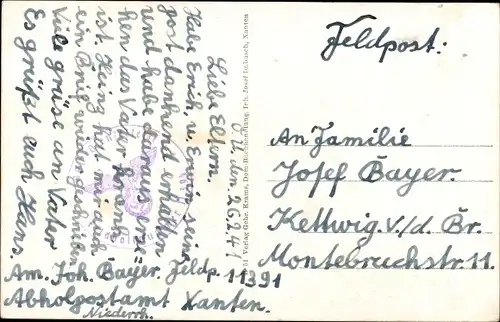 Feldpost:
O.U. den 26.2.41
Liebe Eltern.
Habe Erich, u. Erwin seine
post dankend erhalten
und habe daraus ma=
hen das Vater krank
ist. Heinz hat mir auch
ein Brief wieder geschrieben
Viele grüse an Vater
Es grüßt euch Hans.
Am. Joh. Bayer. Feldp. 11391
Abholpostamt Xanten.
Niederrh.
Verlag Gebr. Krams, Inh. Josef Xanten
An Familie
Josef Bayer.
Kettwig v./d. Br.
Montebruchstr. 11.